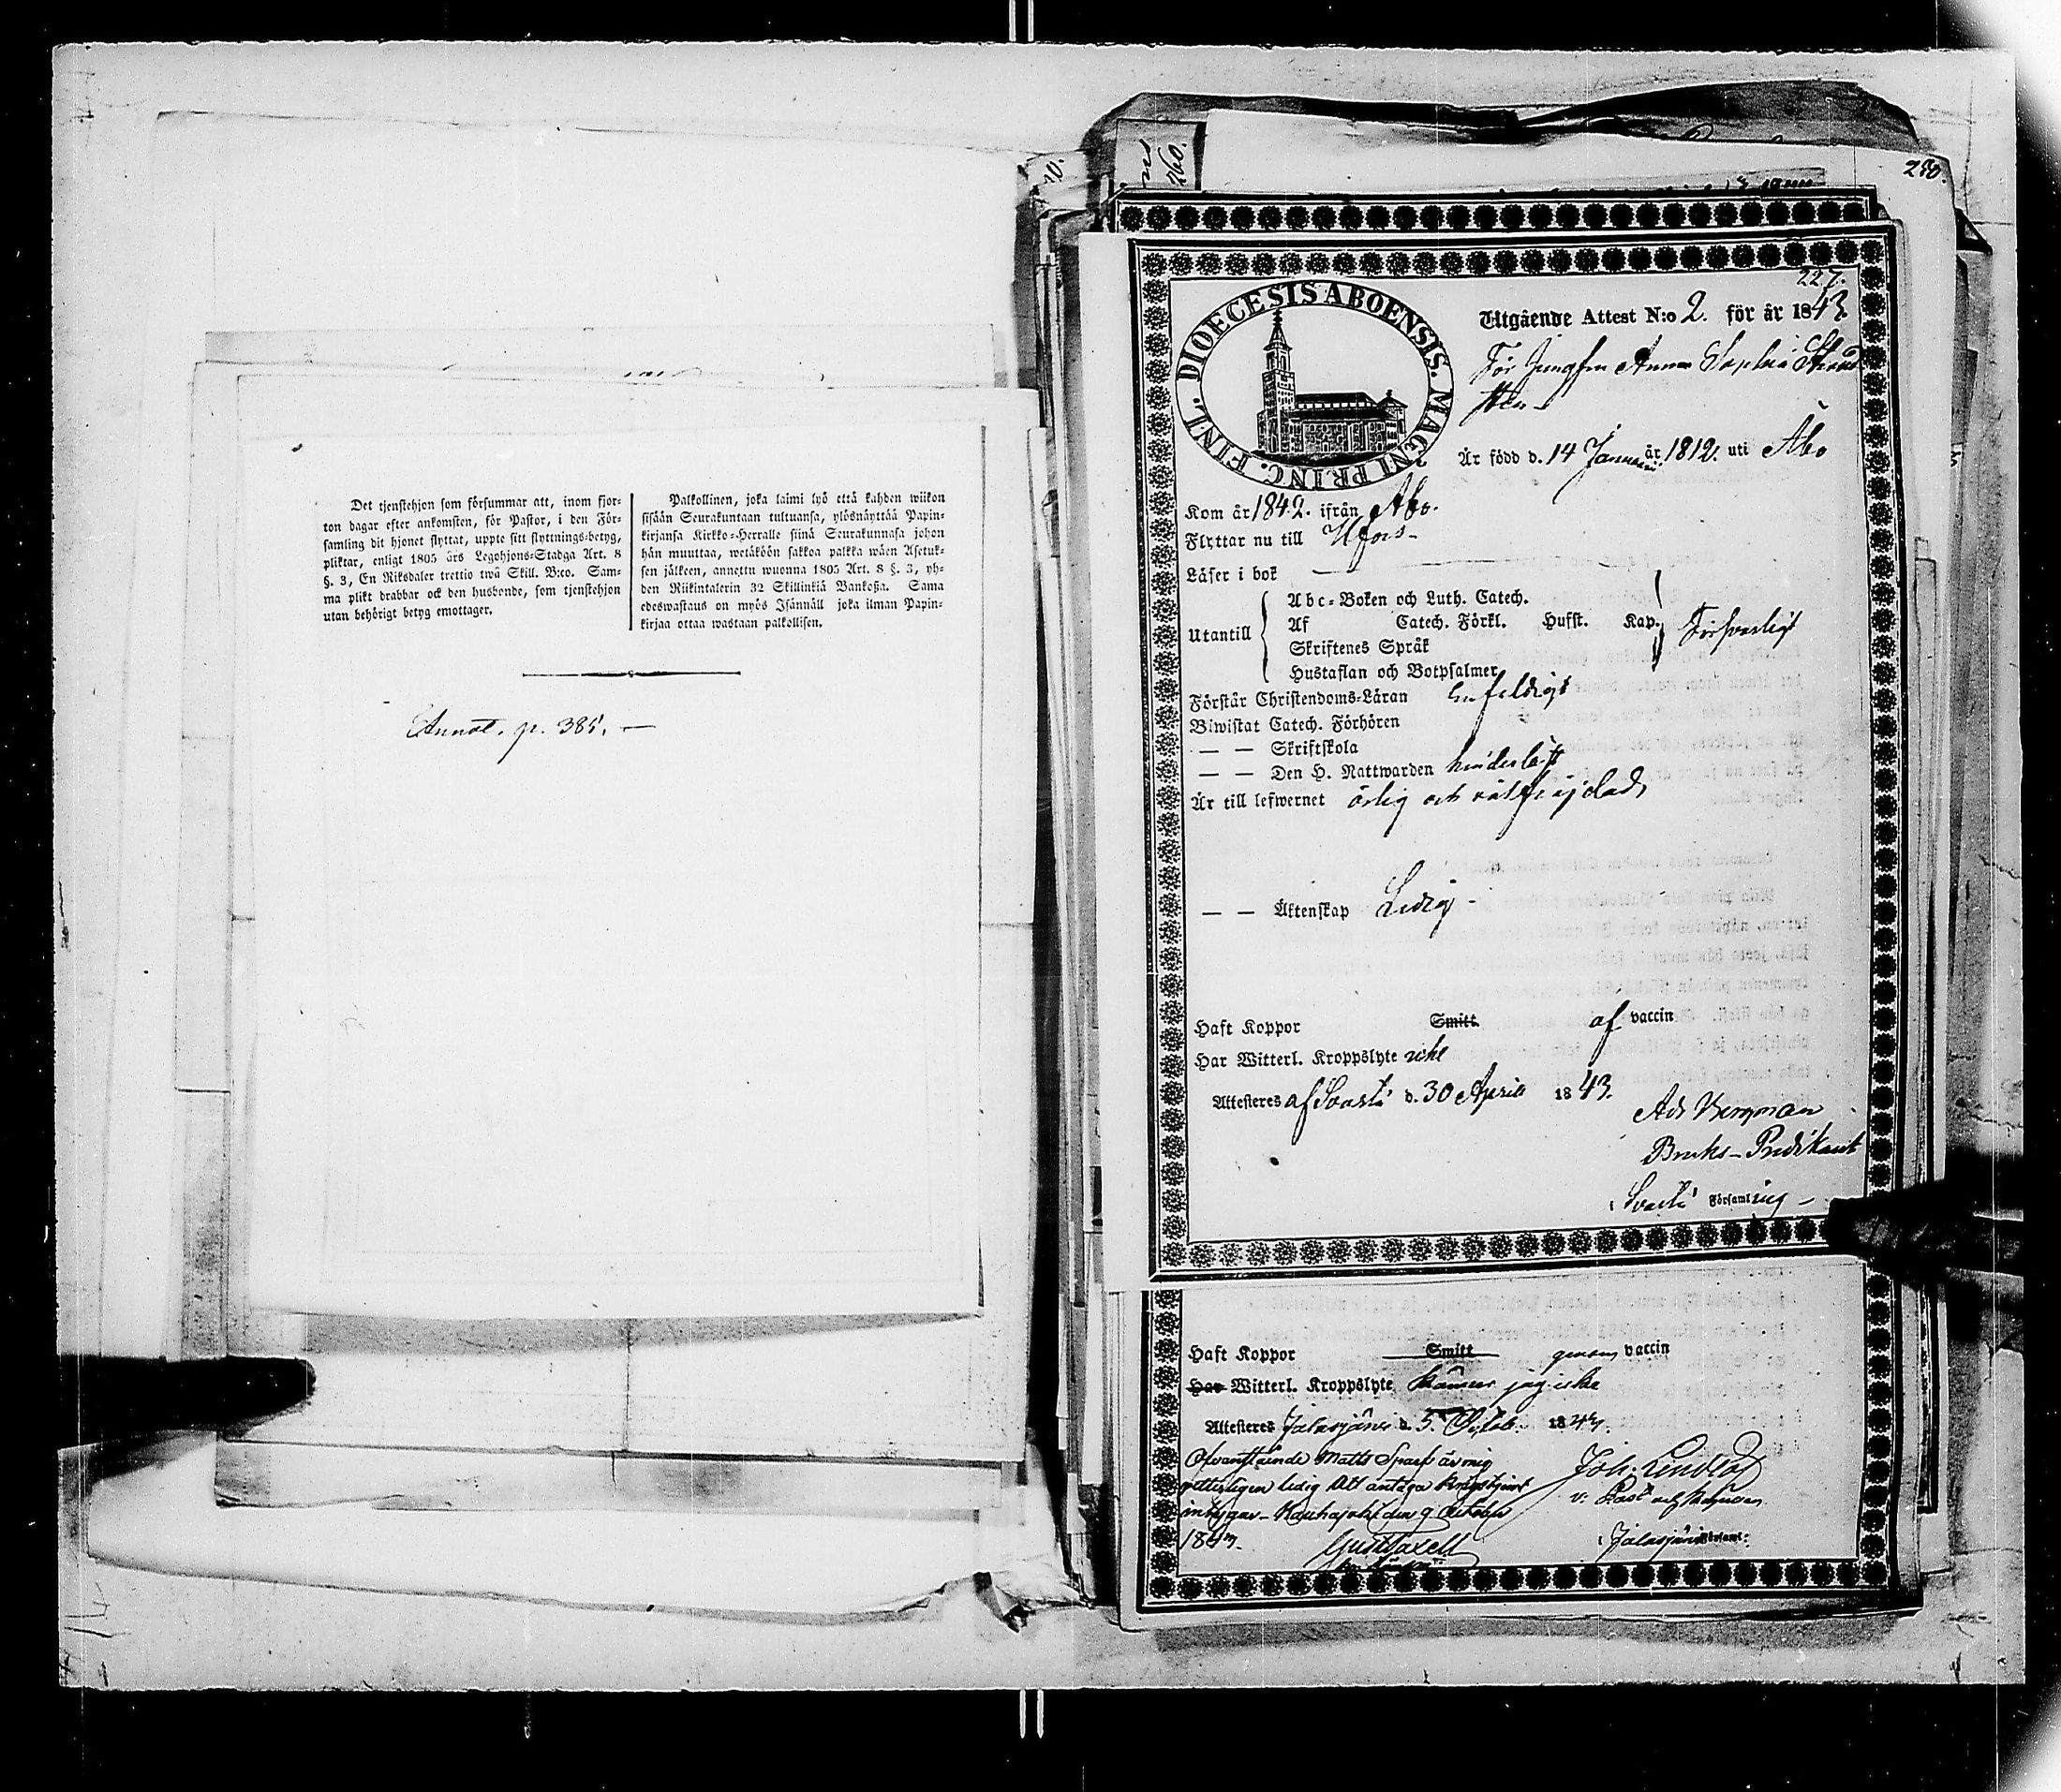 Det tjenstehjon som försummar att, inom fjor-
ton dagar efter ankomsten, för Pastor, i den För-
samling dit hjonet flyttat, uppte sitt flyttnings-betyg,
pliktar, enligt 1805 års Legohjons-Stadga Art. 8
§. 3, En Riksdaler trettio twå Skill. B:co. Sam-
ma plikt drabbar ock den husbonde, som tjenstehjon
utan behörigt betyg emottager.
Palkollinen, joka laimi lyö että kahden wiikon
sisään Seurakuntaan tultuansa, ylösnäyttää Papin-
kirjansa Kirkko-Herralle siinä Seurakunnasa johon
hän muuttaa, wetäköön sakkoa palkka wäen Asetuk-
sen jälkeen, annettu wuonna 1805 Art. 8 §. 3, yh-
den Riikintalerin 32 Skillinkiä Bankosa. Sama
edeswastaus on myös Isännäll joka ilman Papin-
kirjaa ottaa wastaan palkollisen.
Annot. p. 385. —
260.
230.
227.
DIOECESIS ABOENSIS. MAGNI PRINC. FINL.
Utgående Attest N:o 2. för år 1843
För Jungfrun Anna Sophia
Är född d. 14 Januarii år 1812. uti Åbo
Kom år 1842. ifrån Åbo.
Flyttar nu till Hfors -
Läser i bok
Utantill
Abc-Boken och Luth. Catech.
Af Catech. Förkl. Husst. Kap. Försvarligt
Skriftenes Språk
Hustaflan och Botpsalmer
Förstår Christendoms-Läran enfeldigt
Biwistat Catech. Förhören
— — Skriftskola
— — Den H. Nattwarden hinderlöst
Är till lefwernet ärlig och
— — Äktenskap Ledig -
Haft Koppor Smitt af vaccin
Har Witterl. Kroppslyte icke
Attesteres af Svartå d. 30 April 1843.
Ad Bergman
Bruks-Predikant
i Svartå Församling -
Haft Koppor Smitt genom vaccin
Har Witterl. Kroppslyte känner jag icke
Attesteres Jalasjärvi d. 5. Octob. 1843.
Ofvanstående Matts Sparf är mig
ledig att antaga
den 9 October
1843.
Joh. Lindlöf
v. Past
i Jalasjärvi Församl: